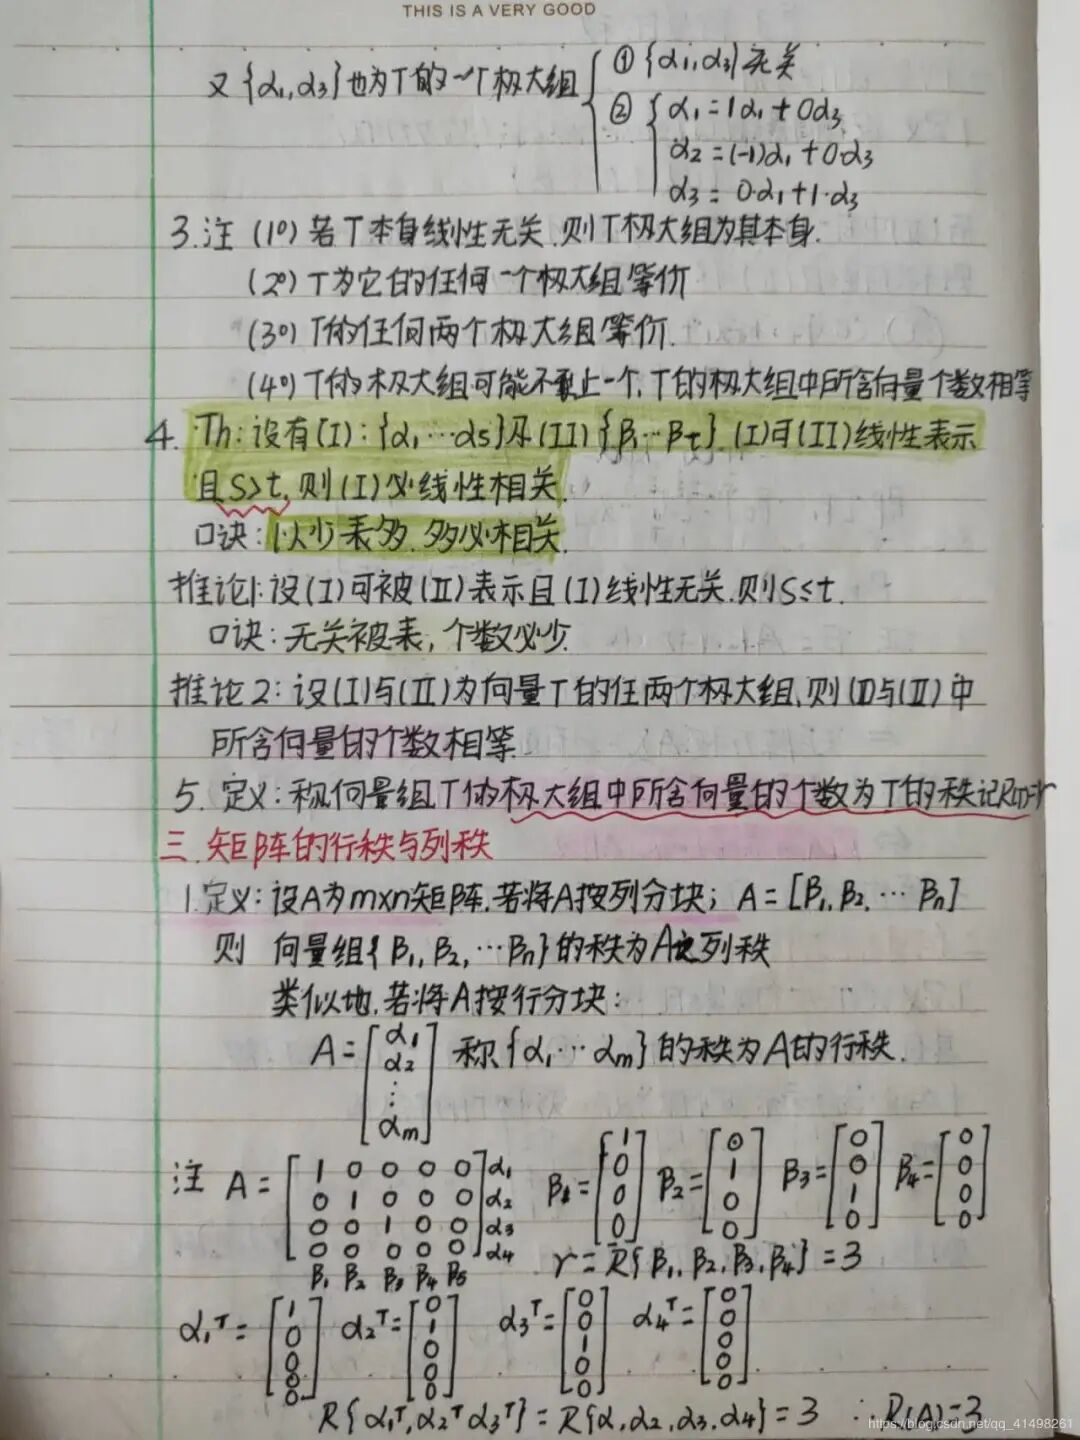 THIS IS A VERY GOOD
又{α₁,α₃}也为T的一个极大组 { ① {α₁,α₃}无关
② { α₁=1α₁+0α₃
α₂=(-1)α₁+0·α₃
α₃=0·α₁+1·α₃
3.注 (1°) 若T本身线性无关.则T极大组为其本身.
(2°) T为它的任何一个极大组等价
(3°) T的任何两个极大组等价.
(4°) T的极大组可能不止一个,T的极大组中所含向量个数相等
4. Th:设有(I):{α₁…αs}及(II){β₁…βt}.(I)可(II)线性表示
且s>t,则(I)必线性相关.
口诀:以少表多.多必相关.
推论1:设(I)可被(II)表示且(I)线性无关.则s≤t.
口诀:无关被表,个数必少.
推论2:设(I)与(II)为向量T的任两个极大组,则(I)与(II)中
所含向量的个数相等.
5.定义:称向量组T的极大组中所含向量的个数为T的秩记R(T)=r
三.矩阵的行秩与列秩
1.定义:设A为m×n矩阵.若将A按列分块; A=[β₁,β₂,…βn]
则 向量组{β₁,β₂,…βn}的秩为A之列秩
类似地.若将A按行分块:
A=[α₁ α₂ ⋮ αm] 称{α₁…αm}的秩为A的行秩.
注 A=[1 0 0 0 0]α₁ β₁=[1 0 0 0] β₂=[0 1 0 0] β₃=[0 0 1 0] β₄=[0 0 0 0]
0 1 0 0 0 α₂
0 0 1 0 0 α₃
0 0 0 0 0 α₄
β₁ β₂ β₃ β₄ β₅ r=R{β₁,β₂,β₃,β₄}=3
α₁ᵀ=[1 0 0 0 0] α₂ᵀ=[0 1 0 0 0] α₃ᵀ=[0 0 1 0 0] α₄ᵀ=[0 0 0 0 0]
R{α₁ᵀ,α₂ᵀ α₃ᵀ}=R{α,α₂,α₃.α₄}=3 ∴R(A)=3
https://blog.csdn.net/qq_41498261